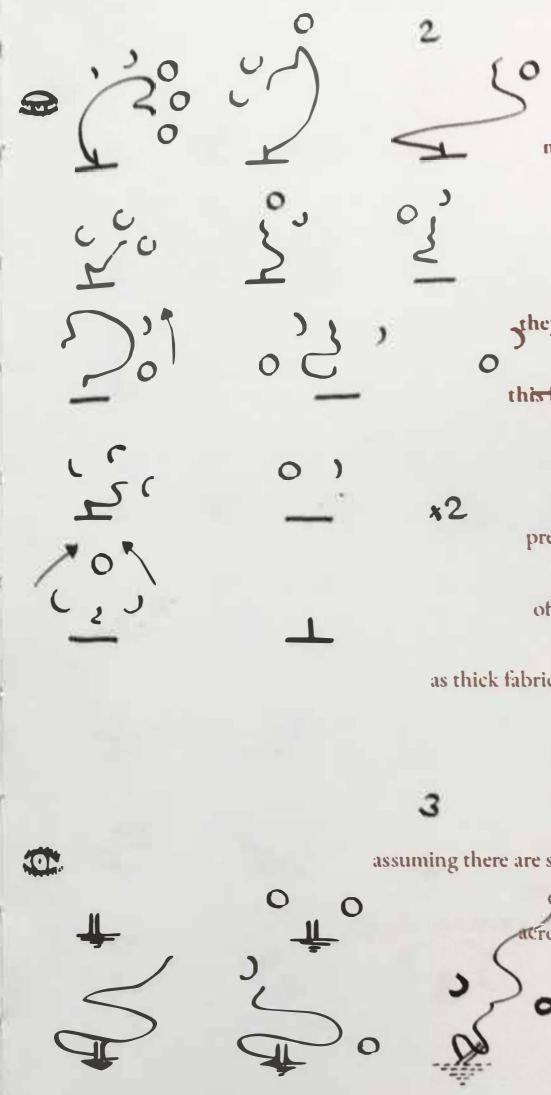 2
they
this
x2
pre
of
as thick fabric
3
assuming there are s
acro